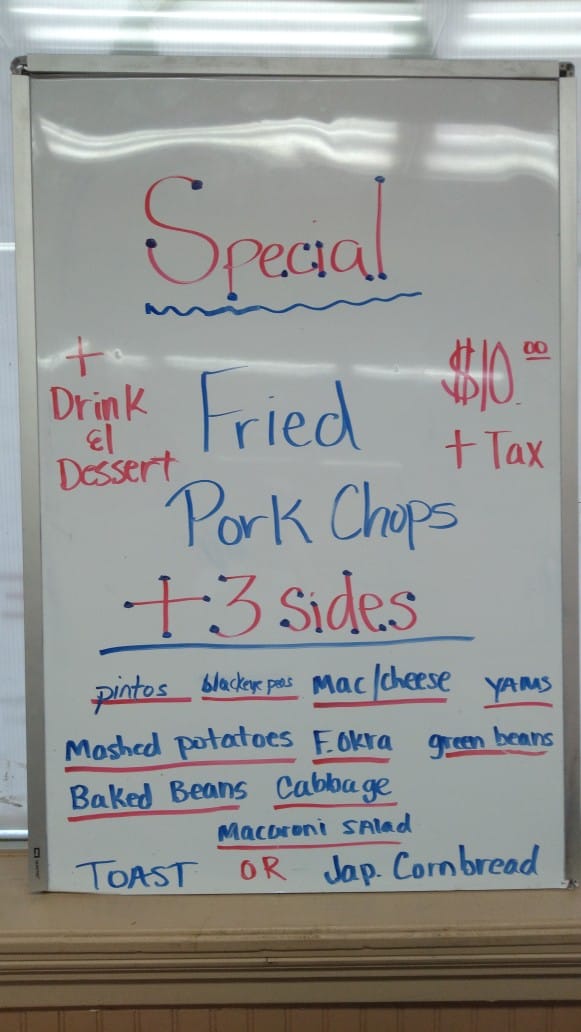 Special
+
Drink
&
Dessert
Fried
$10.00
+ Tax
Pork Chops
+ 3 sides
pintos blackeye peas Mac/cheese YAMS
Mashed potatoes F. Okra green beans
Baked Beans Cabbage
Macaroni SAlad
TOAST OR Jap. Cornbread